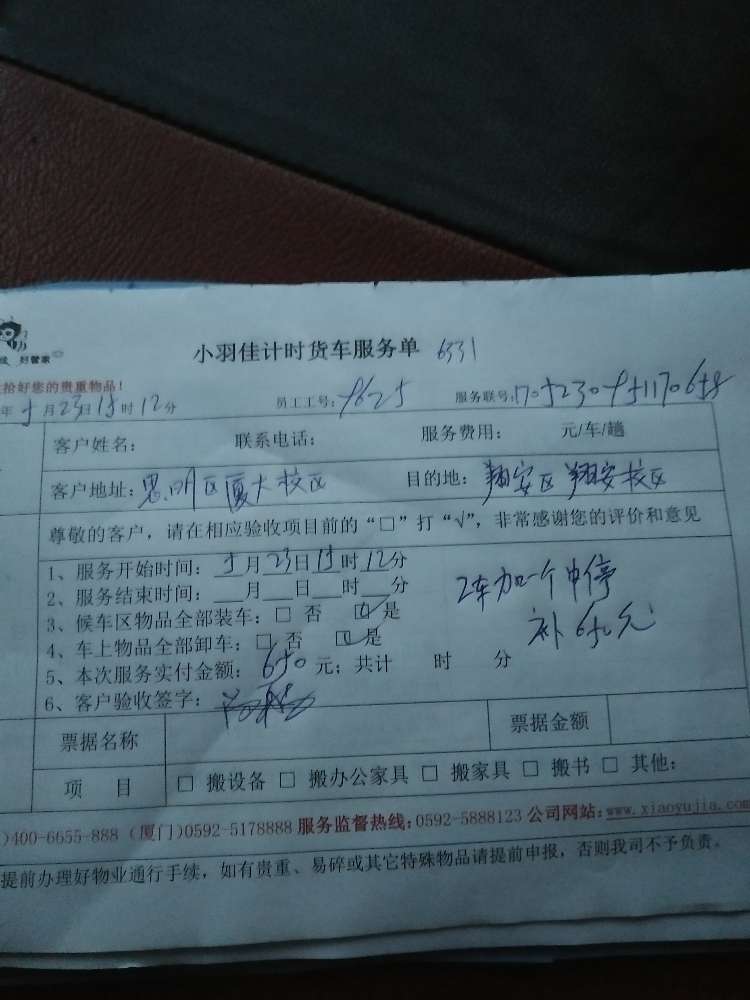 好管家
小羽佳计时货车服务单 6331
拾好您的贵重物品!
年5月23日15时12分 员工工号: 9625 服务联号:
客户姓名: 联系电话: 服务费用: 元/车/趟
客户地址: 思明区厦大校区 目的地: 翔安区翔安校区
尊敬的客户，请在相应验收项目前的“□”打“√”，非常感谢您的评价和意见
1、服务开始时间: 5月23日15时12分
2、服务结束时间: 月 日 时 分
2车加一个中停
3、候车区物品全部装车: □ 否 ☑ 是
补650元
4、车上物品全部卸车: □ 否 ☑ 是
5、本次服务实付金额: 650元; 共计 时 分
6、客户验收签字:
票据名称 票据金额
项 目 □ 搬设备 □ 搬办公家具 □ 搬家具 □ 搬书 □ 其他:
)400-6655-888 (厦门)0592-5178888 服务监督热线:0592-5888123 公司网站:www.xiaoyujia.com
提前办理好物业通行手续，如有贵重、易碎或其它特殊物品请提前申报，否则我司不予负责。